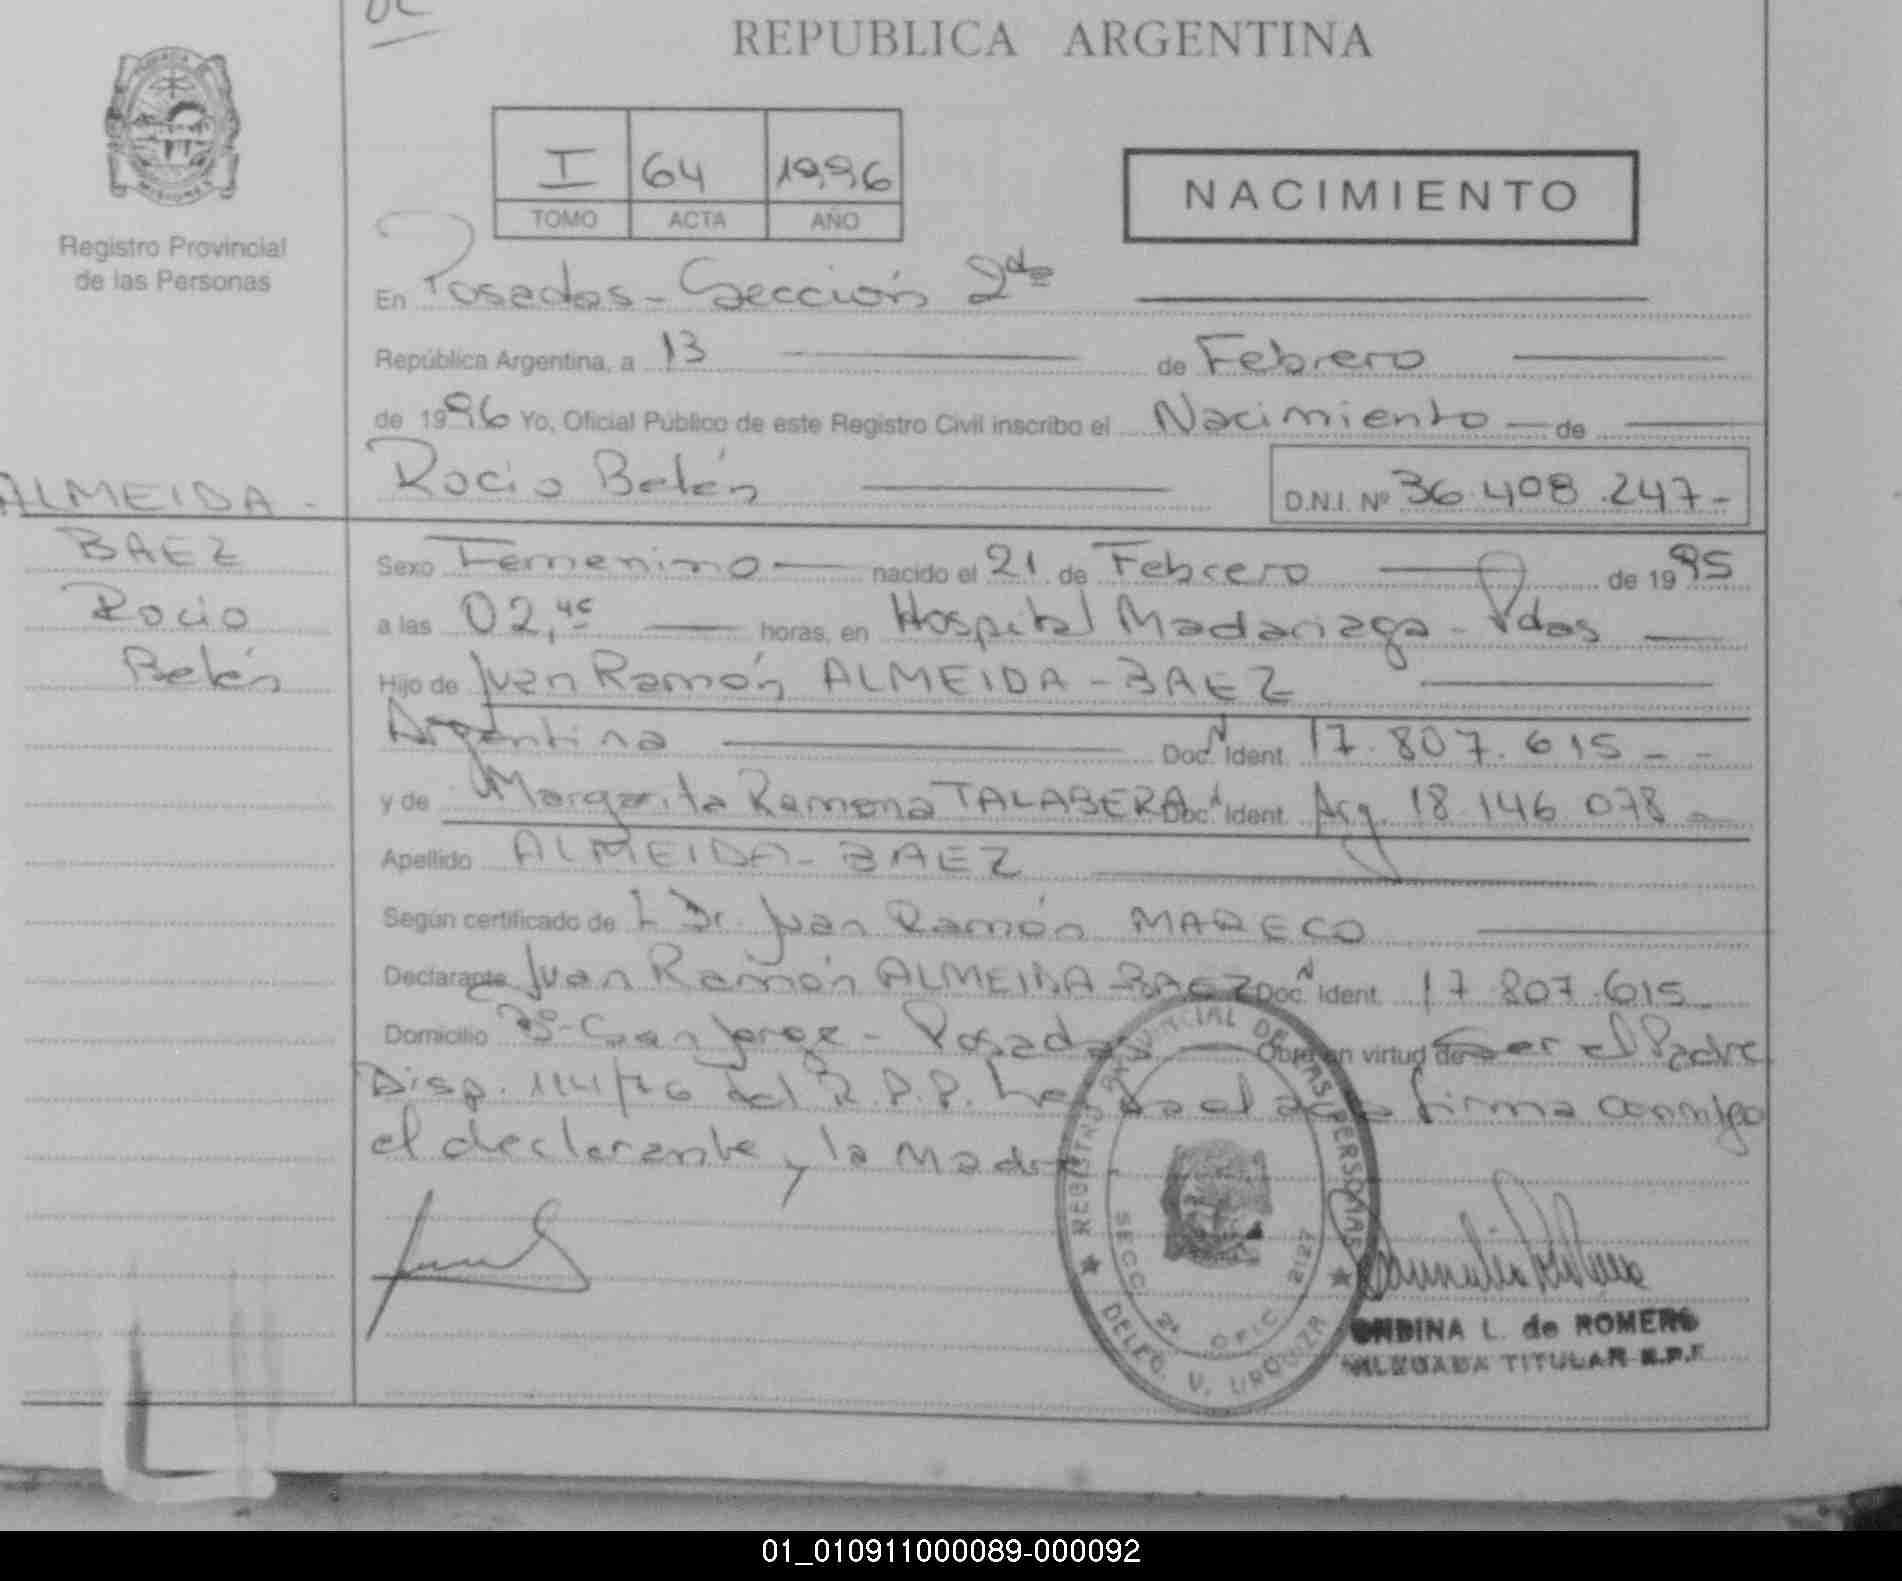 REPUBLICA ARGENTINA
I 64 1996
TOMO ACTA AÑO
NACIMIENTO
MISIONES
Registro Provincial
de las Personas
En Posadas - Sección 2da
República Argentina, a 13 de Febrero
de 1996 Yo, Oficial Público de este Registro Civil inscribo el Nacimiento de
Rocio Belén D.N.I. Nº 36.408.247-
ALMEIDA -
BAEZ
Rocio
Belén
Sexo Femenino nacido el 21 de Febrero de 1995
a las 02,45 horas, en Hospital Madariaga - Pdas
Hijo de Juan Ramón ALMEIDA - BAEZ
Argentina Doc. N Ident. 17.807.615 - -
y de Margarita Ramona TALABERA Doc. Ident. Arg. 18.146.078 -
Apellido ALMEIDA - BAEZ
Según certificado de Dr. Juan Ramón MARECO
Declarante Juan Ramón ALMEIDA - BAEZ Doc. N Ident. 17.807.615 -
Domicilio Bº San Jorge - Posadas Obra en virtud de Ser el Padre
Disp. 114/76 del R.P.P. el acta firma conmigo
el declarante y la Madre
REGISTRO PROVINCIAL DE LAS PERSONAS
SECC. 2ª OFIC. 2127
DELEG. V. URQUIZA
ONDINA L. de ROMERO
DELEGADA TITULAR R.P.P.
01_010911000089-000092